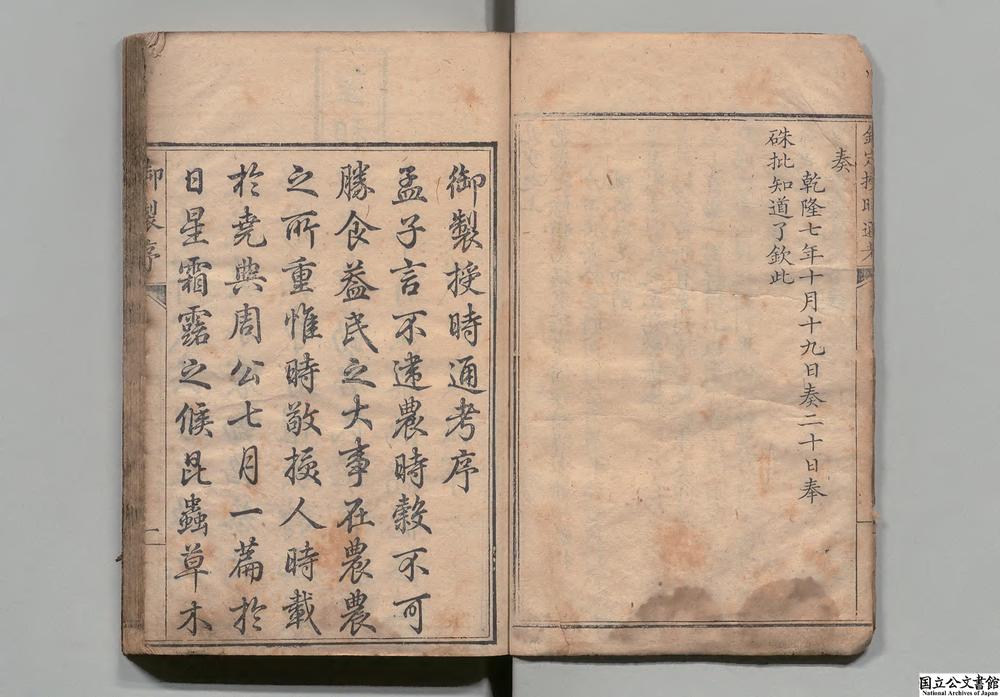 欽定授時通考
奏
乾隆七年十月十九日奏二十日奉
硃批知道了欽此
御製授時通考序
孟子言不違農時榖不可
勝食益民之大事在農農
之所重惟時敬授人時載
於堯典周公七月一篇於
日星霜露之候昆蟲草木
御製序
一
国立公文書館
National Archives of Japan